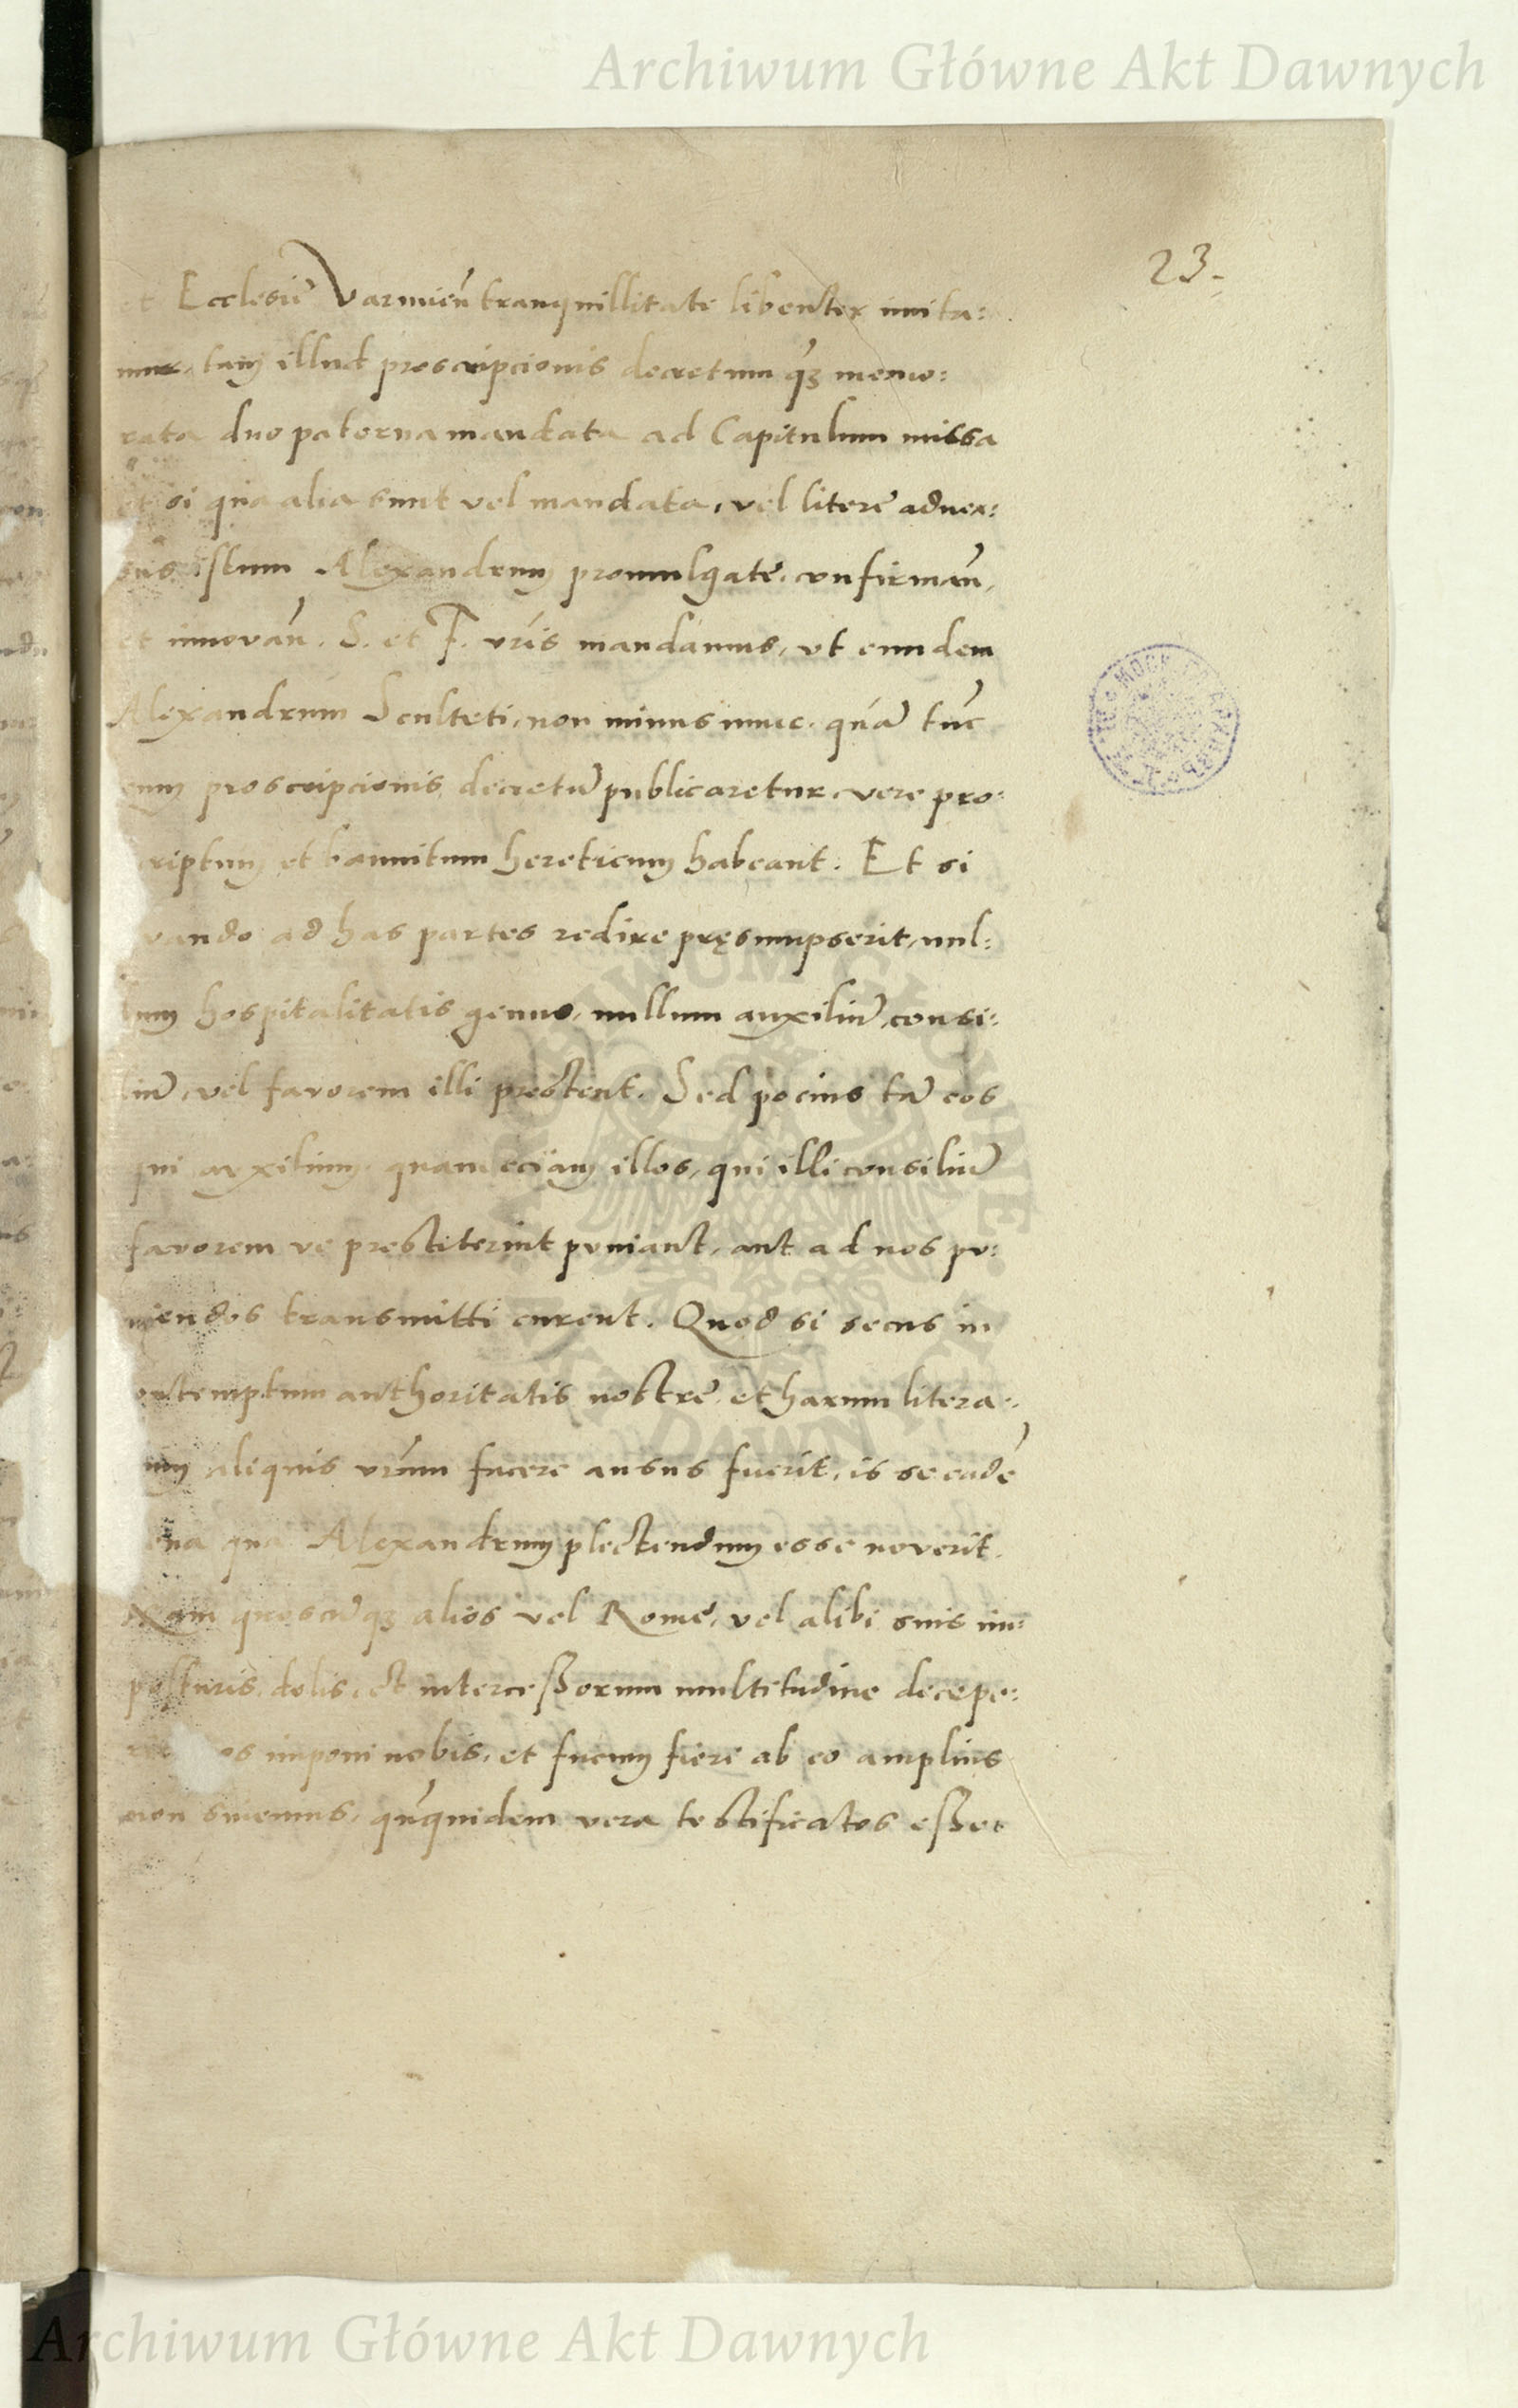 Archiwum Główne Akt Dawnych
23.
et Ecclesię Varmieñ tranquillitate libenter imita:
mur, tam illud proscripcionis decretum q̃ꝫ memo:
rata duo paterna mandata ad Capitulum missa
et si qua alia sunt vel mandata, vel literę adver:
sus istum Alexandrum promulgatę, confirmañ,
et innovañ. S. et F. vr̃is mandamus, ut eundem
Alexandrum Sculteti, non minus nunc, quã tũc
cum proscripcionis decretũ publicaretur, vere pro:
criptum et bannitum hereticum habeant. Et si
uando ad has partes redire pręsumpserit, nul:
lum hospitalitatis genus, nullum auxiliũ, consi:
liũ, vel favorem illi prestent. Sed pocius tã eos
qui auxilium, quam eciam illos, qui illi consiliũ
favorem ve prestiterint puniant, aut ad nos pu:
niendos transmitti curent. Quod si secus in
ontemptum authoritatis nostrę, et harum litera:
um aliquis vr̃um facere ausus fuerit, is se eadẽ
ena qua Alexandrum plectendum esse noverit.
Nam quoscũqꝫ alios vel Romę, vel alibi suis im:
posturis, dolis, et intercessorum multitudine decepe:
os imponi nobis, et fucum fieri ab eo amplius
non sinemus, qñquidem vera testificatos esse
ARCHIWUM GŁÓWNE
AKT DAWNYCH
Archiwum Główne Akt Dawnych